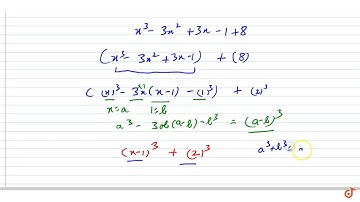 x³ - 3x² + 3x - 1 + 8
(x³ - 3x² + 3x - 1) + (8)
( (x)³ - 3x¹(x - 1) - (1)³ ) + (2)³
x = a 1 = b
a³ - 3ab(a-b) - b³ = (a-b)³
(x-1)³ + (2)³ a³+b³ =